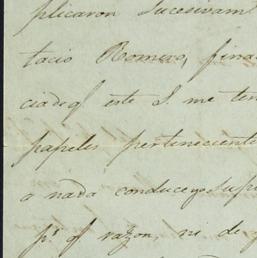 plicaron sucesivam
tacio Romero, fina
cia de q.e este S. me ten
papeles pertenecient
o nada conduce
p.r q.e razon, ni de